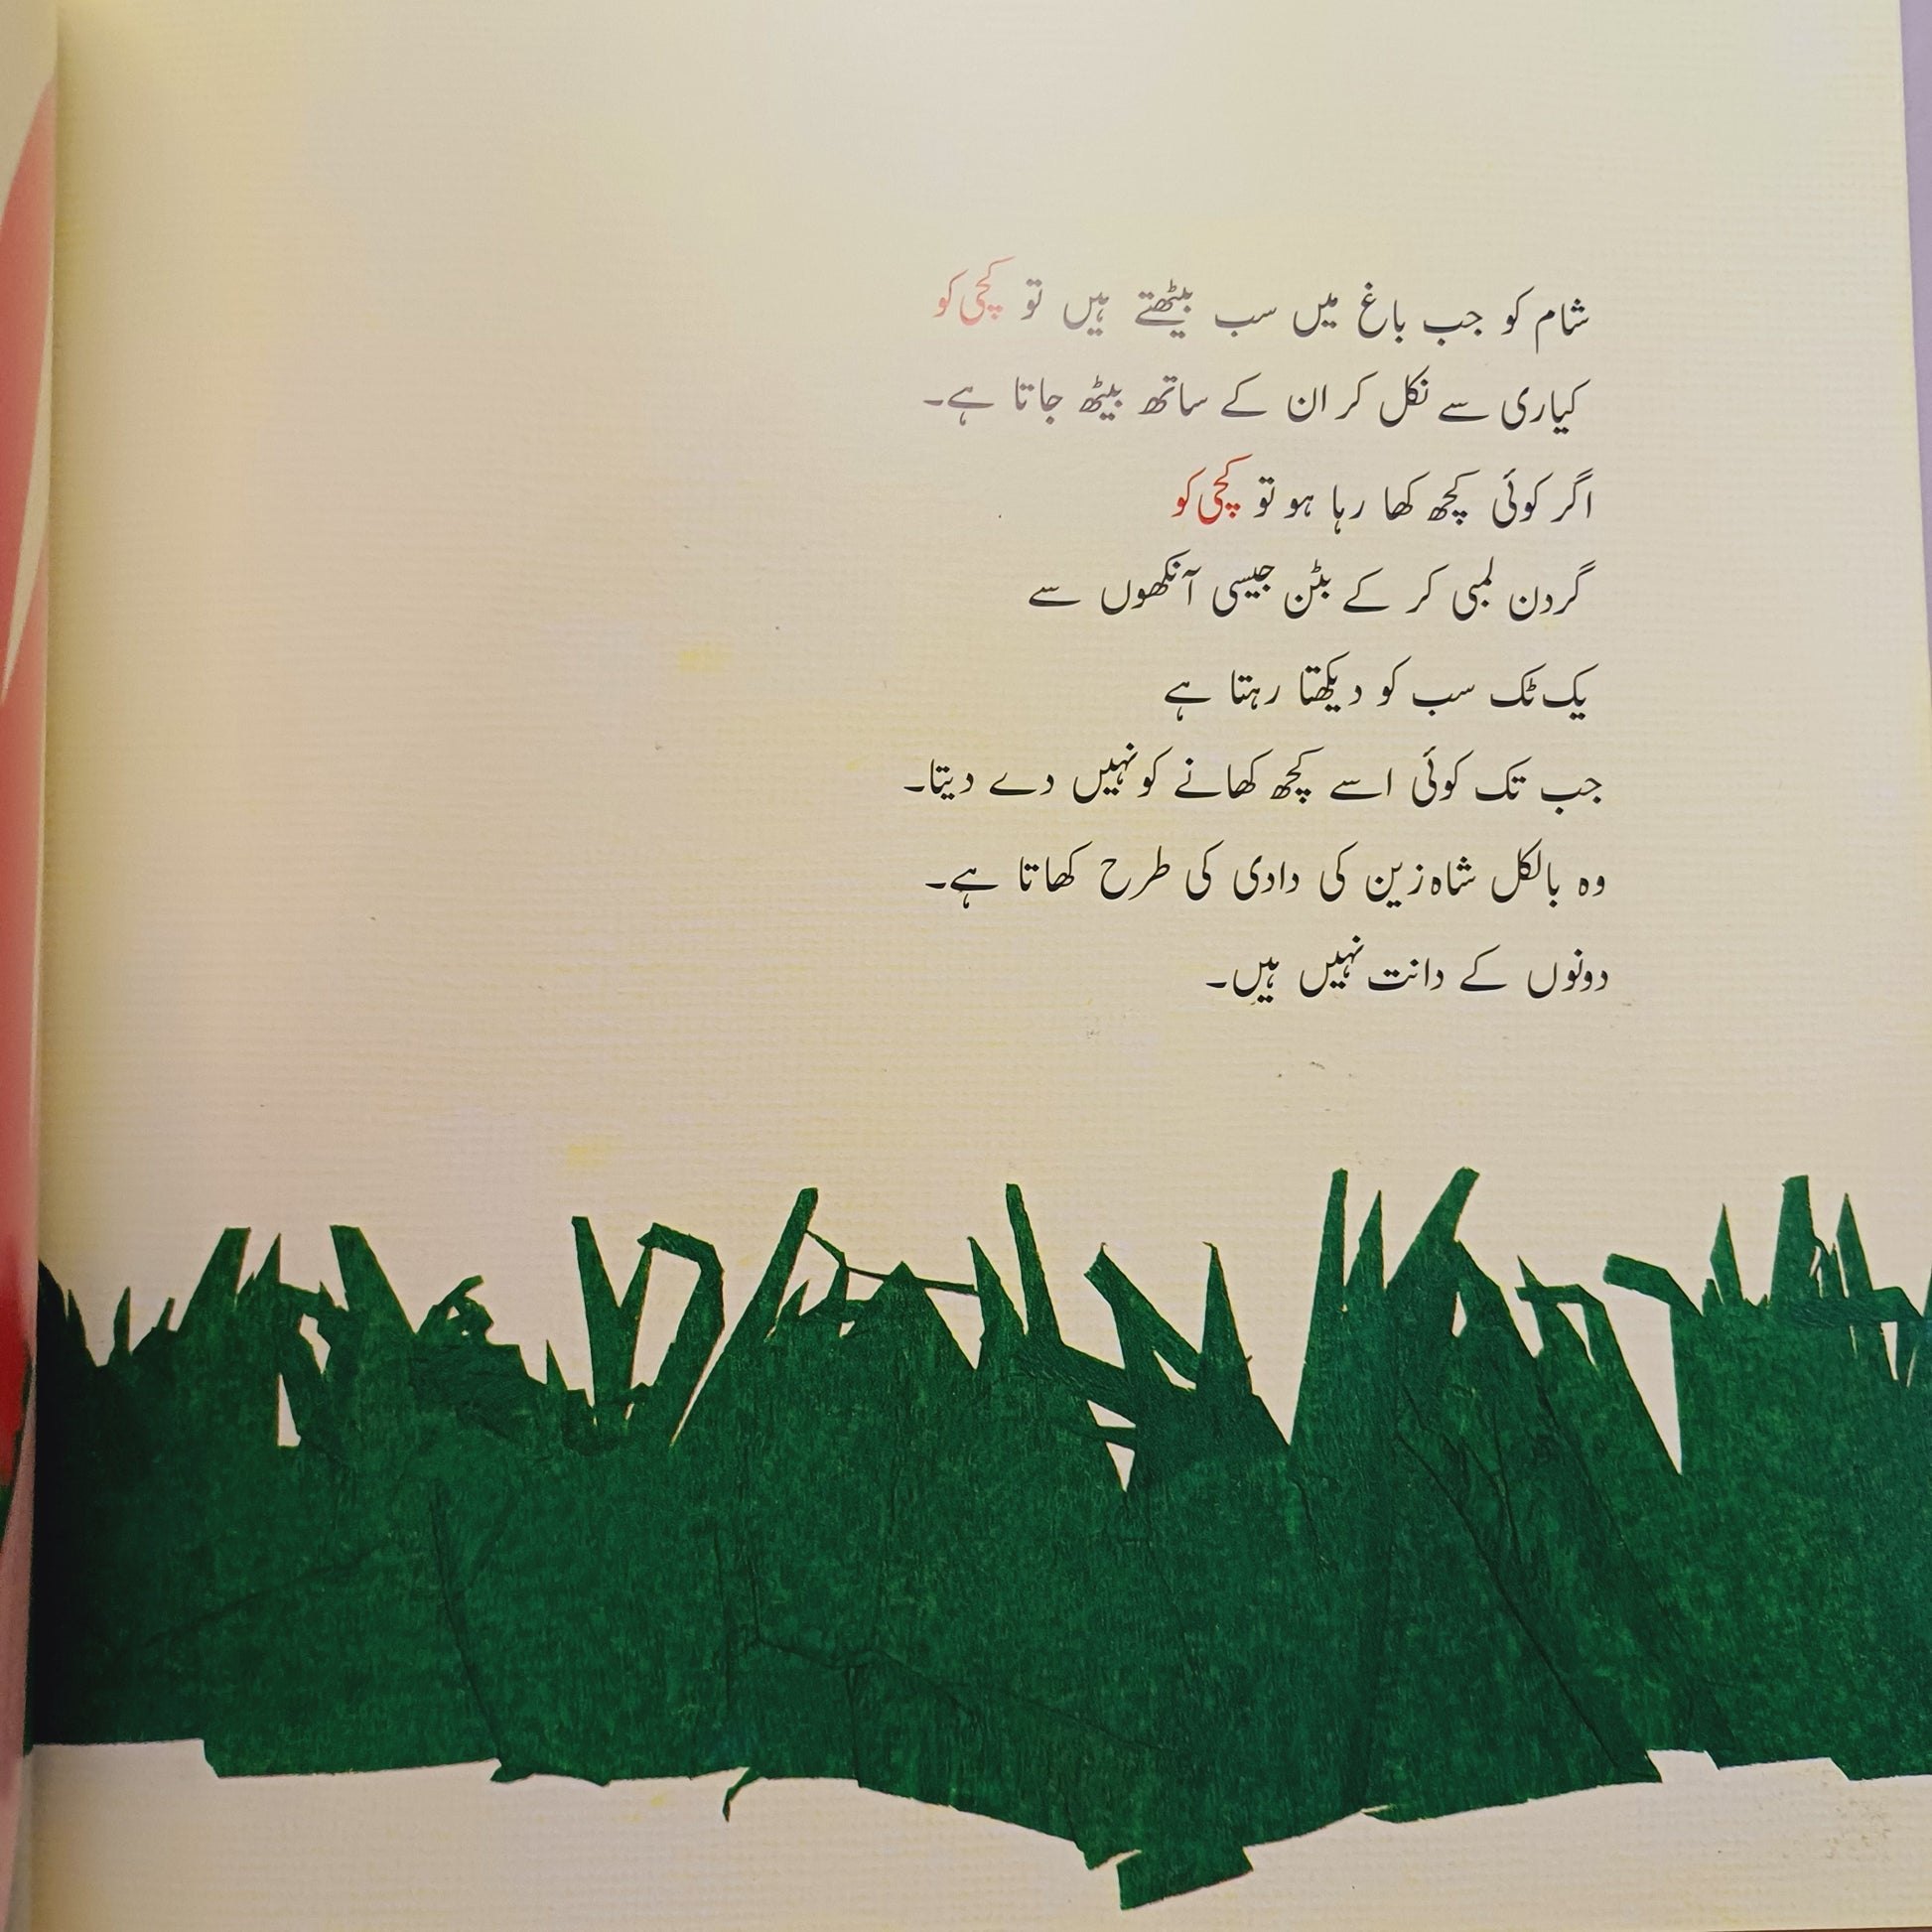 شام کو جب باغ میں سب بیٹھتے ہیں تو کچی کو
کیاری سے نکل کر ان کے ساتھ بیٹھ جاتا ہے۔
اگر کوئی کچھ کھا رہا ہو تو کچی کو
گردن لمبی کر کے بٹن جیسی آنکھوں سے
یک ٹک سب کو دیکھتا رہتا ہے
جب تک کوئی اسے کچھ کھانے کو نہیں دے دیتا۔
وہ بالکل شاہ زین کی دادی کی طرح کھاتا ہے۔
دونوں کے دانت نہیں ہیں۔